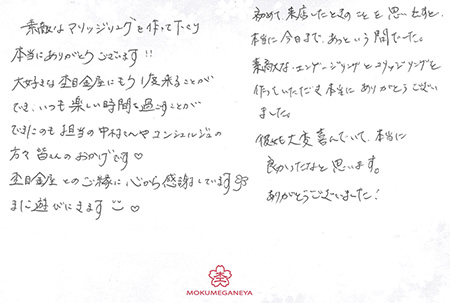 素敵なマリッジリングを作って下さり
本当にありがとうございます!!
大好きな杢目金屋にもう1度来ることが
でき、いつも楽しい時間を過ごすことが
できたのも担当の中村さんやコンシェルジュの
方々皆さんのおかげです♡
杢目金屋とのご縁に心から感謝しています
また遊びにきます ♡
初めて来店したときのことを思い出すと、
本当に今日まで、あっという間でした。
素敵な、エンゲージリングとマリッジリングを
作っていただき本当にありがとうござい
ました。
彼女も大変喜んでいて、本当に
良かったなと思います。
ありがとうございました!
MOKUMEGANEYA